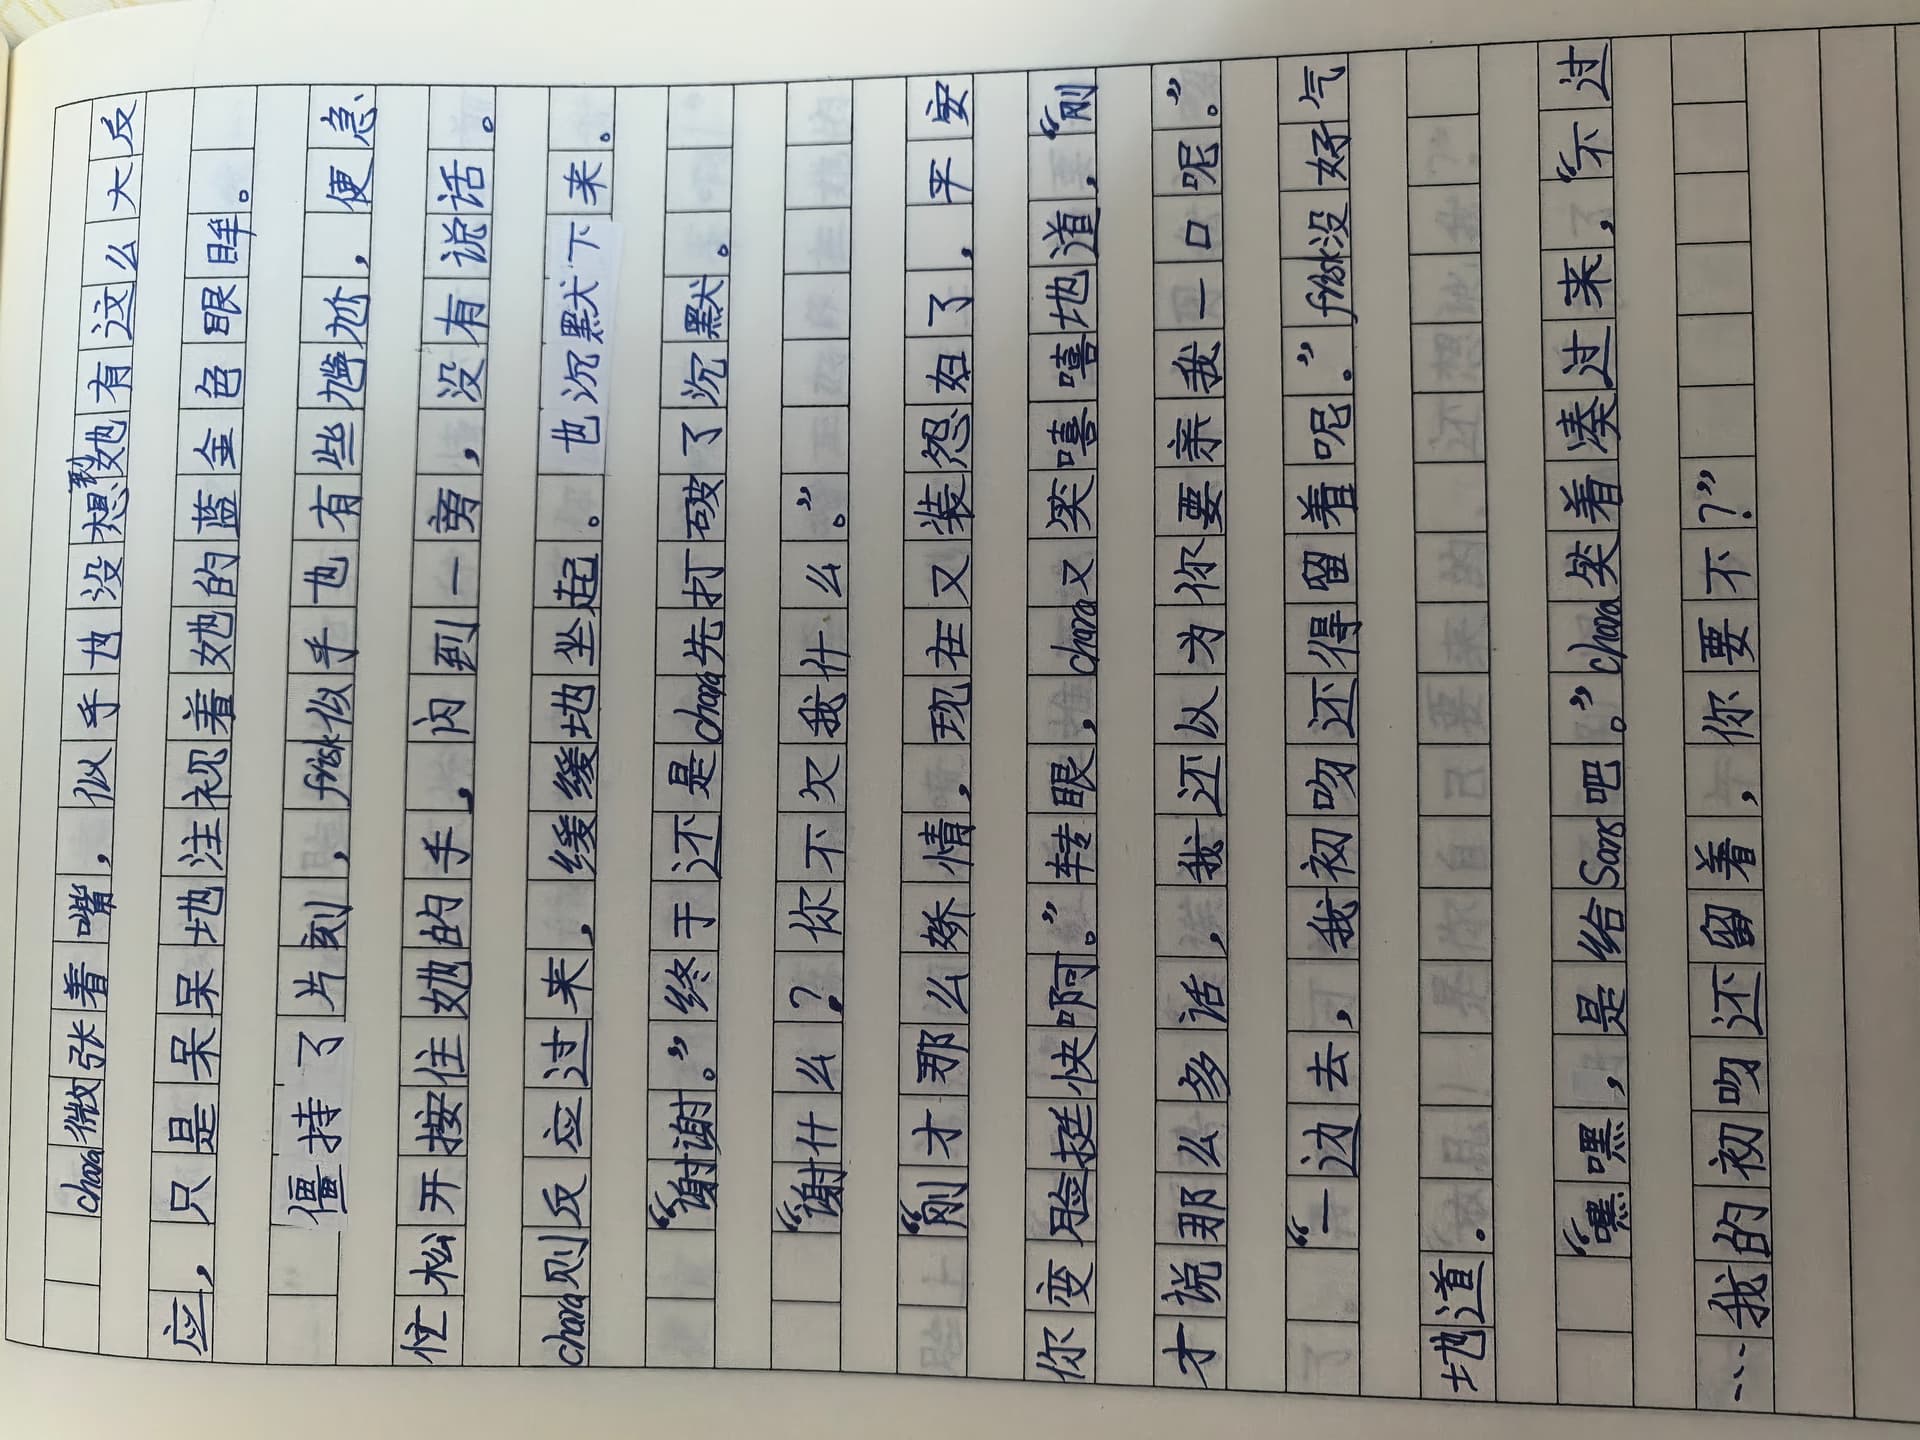 chara微张着嘴，似乎也没想到她有这么大反
应，只是呆呆地注视着她的蓝金色眼眸。
僵持了片刻，frisk似乎也有些尴尬，便急
忙松开按住她的手，闪到一旁，没有说话。
chara则反应过来，缓缓地坐起。也沉默下来。
“谢谢。”终于还是chara先打破了沉默。
“谢什么？你不欠我什么。”
“刚才那么娇情，现在又装怨妇了，平安
你变脸挺快啊。”转眼，chara又笑嘻嘻地道，“刚
才说那么多话，我还以为你要亲我一口呢。”
“一边去，我初吻还得留着呢。”frisk没好气
地道。
“嘿嘿，是给Sans吧。”chara笑着凑过来，“不过
…我的初吻还留着，你要不？”